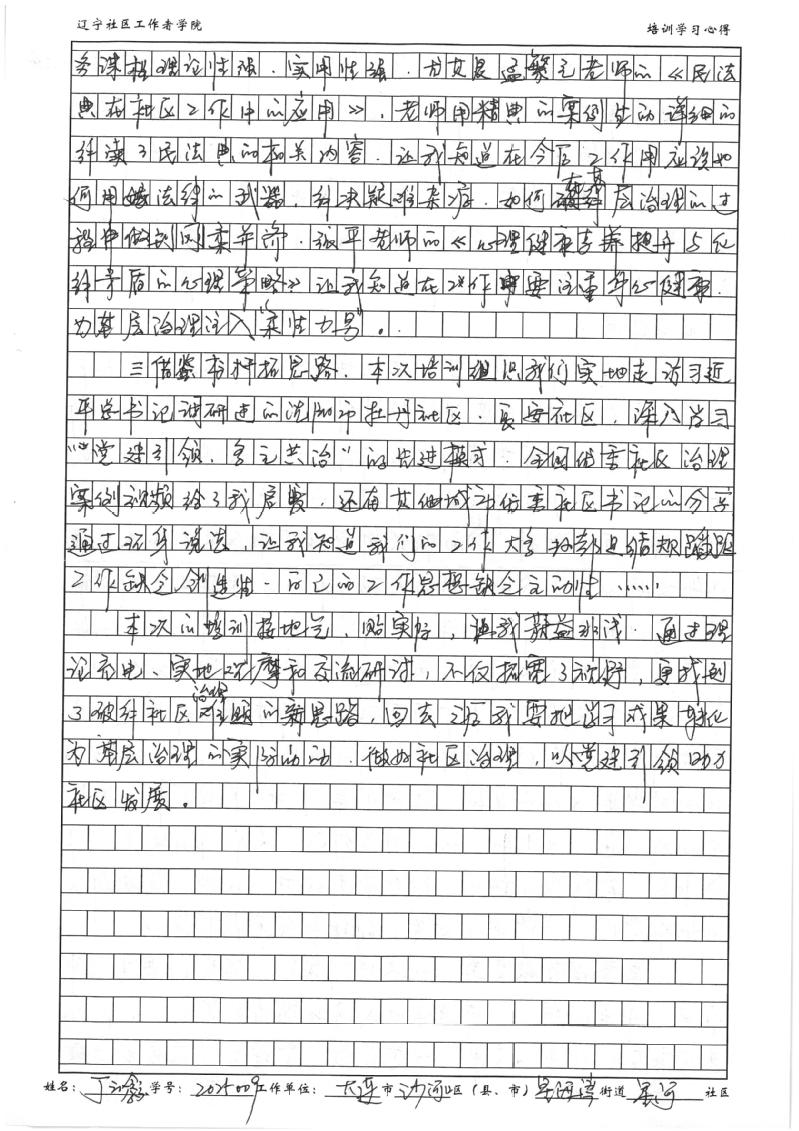 辽宁社区工作者学院 培训学习心得
务课程理论性强、实用性强,尤其是孟繁元老师的《民法
典在社区工作中的应用》,老师用精典的案例生动详细的
解读了民法典的相关内容,让我知道在今后工作用应该如
何用好法律的武器,解决疑难杂症。如何在基层治理的过
程中做到刚柔并济,张平老师的《心理健康素养提升与化
解矛盾的心理策略》让我知道在工作中要注重身心健康,
为基层治理注入“柔性力量”。
三借鉴标杆拓思路,本次培训组织我们实地走访习近
平总书记调研过的沈阳市牡丹社区、长安社区,深入学习
“党建引领,多元共治”的先进模式,全国优秀社区治理
案例视频给了我启发,还有其他城市优秀社区书记的分享
通过现身说法,让我知道我们的工作大多都是循规蹈矩
工作缺乏创造性,自己的工作思想缺乏主动性……
本次的培训接地气,贴实际,让我获益非浅,通过理
论充电、实地观摩和交流研讨,不仅拓宽了视野,更找到
了破解社区治理难题的新思路,回去之后我要把学习成果转化
为基层治理的实际动力,做好社区治理,以党建引领助力
社区发展。
姓名: 学号:2025009 工作单位: 大连市沙河口区(县、市) 街道 星河 社区